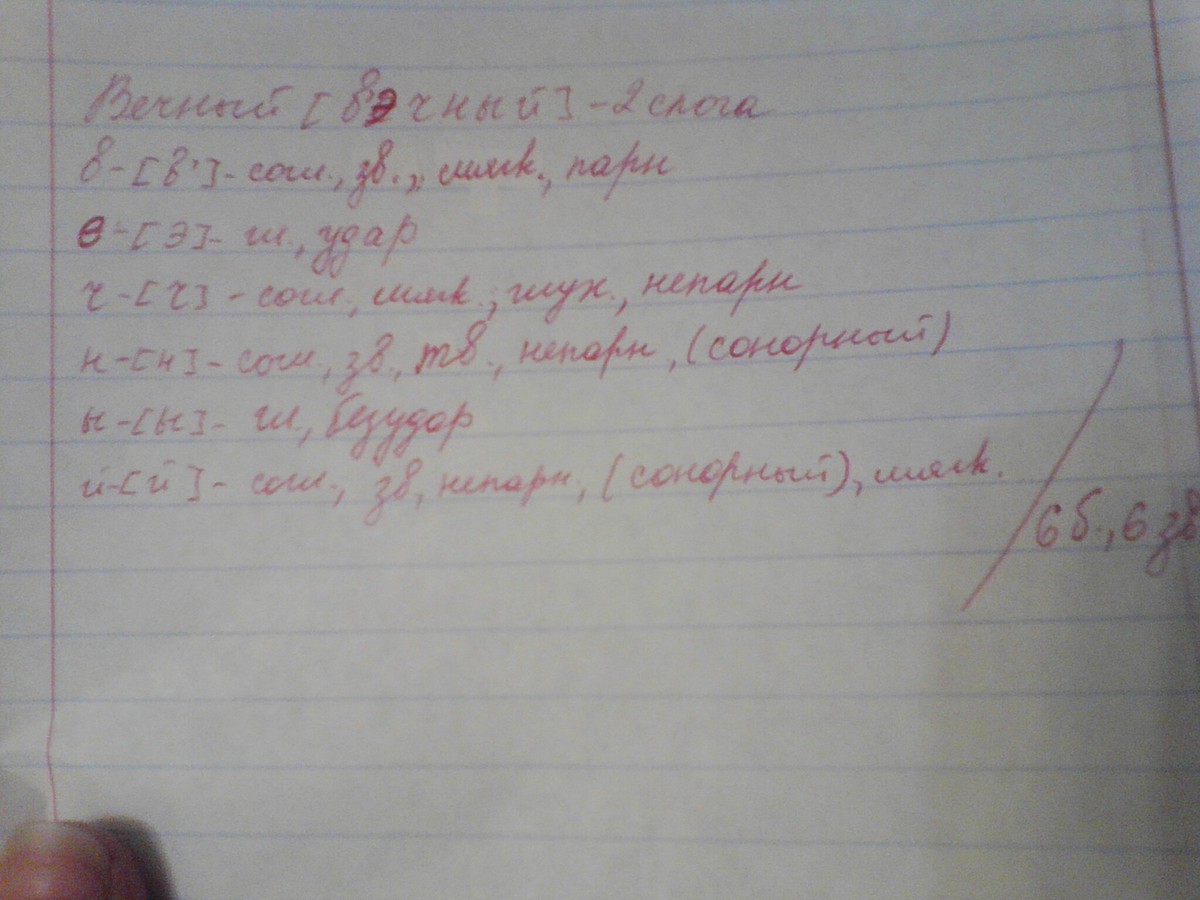 Вечный [вэчный] - 2 слога
в - [в'] - согл., зв., мягк., парн
е - [э] - гл., удар
ч - [ч] - согл., мягк., глух., непарн
н - [н] - согл., зв., тв., непарн, (сонорный)
ы - [ы] - гл, безудар
й - [й] - согл., зв, непарн, (сонорный), мягк.
6 б., 6 зв